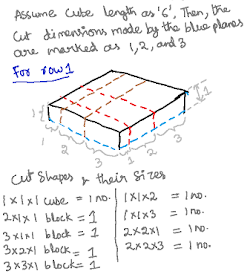 Assume Cube length as '6', Then, the
Cut dimensions made by the blue planes
are marked as 1, 2, and 3
For row 1
1
1
2
3
1
2
3
Cut Shapes & their Sizes
1x1x1 cube = 1 no.
2x1x1 block = 1
3x1x1 block = 1
3x2x1 block = 1
3x3x1 block = 1
1x1x2 = 1 no.
1x1x3 = 1 no.
2x2x1 = 1 no.
2x2x3 = 1 no.